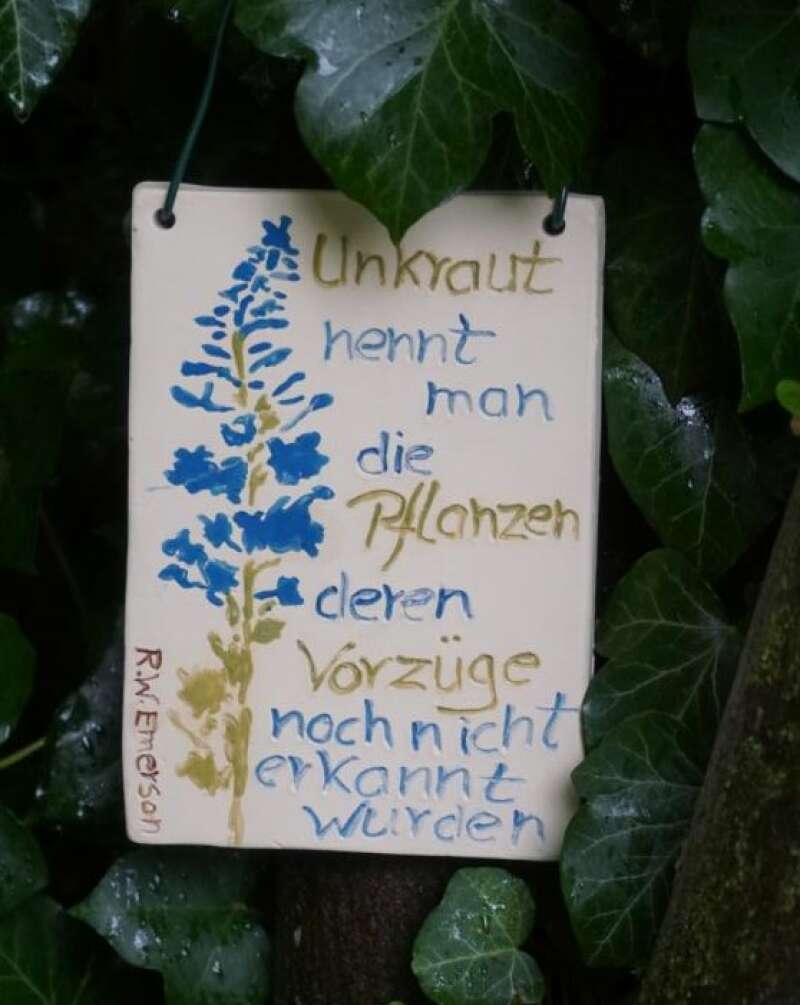 Unkraut
nennt
man
die
Pflanzen
deren
Vorzüge
noch nicht
erkannt
wurden
R.W. Emerson